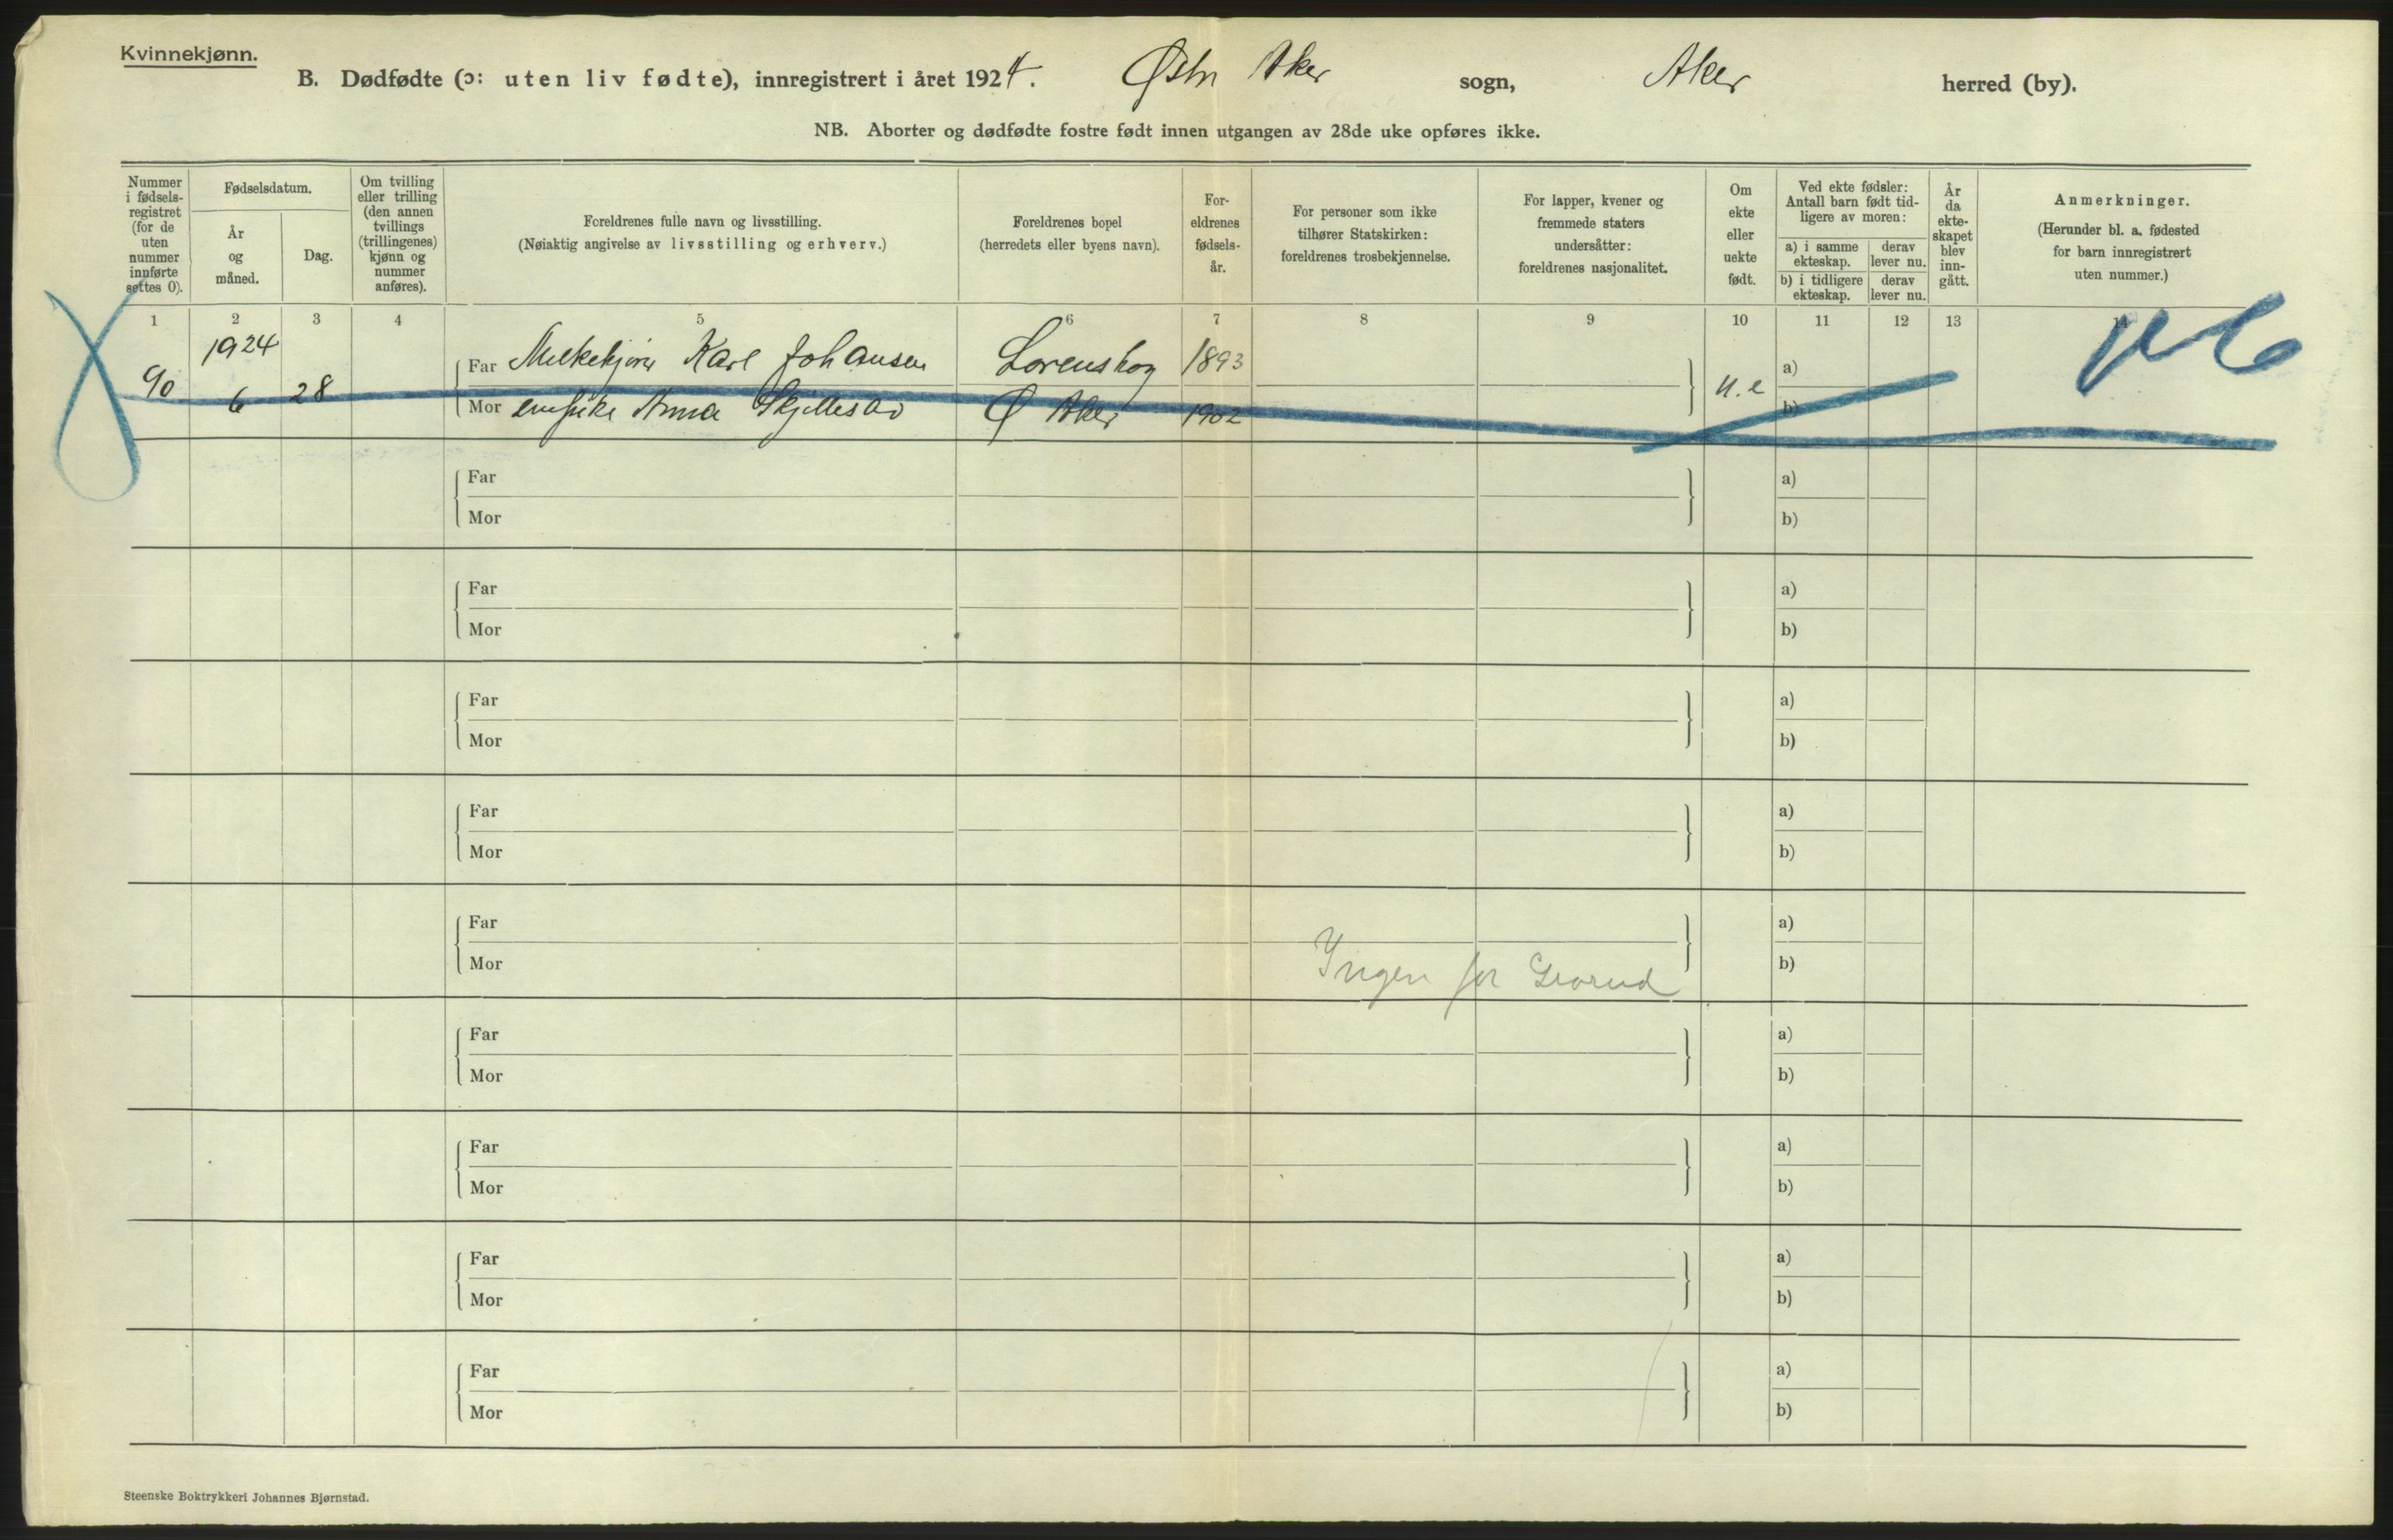 Kvinnekjønn.
B. Dødfødte (ɔ: uten liv fødte), innregistrert i året 1924. Østre Aker sogn, Aker herred (by).
NB. Aborter og dødfødte fostre født innen utgangen av 28de uke opføres ikke.
Nummer i fødsels-registret (for de uten nummer innførte settes 0).
Fødselsdatum.
År og måned.
Dag.
Om tvilling eller trilling (den annen tvillings (trillingenes) kjønn og nummer anføres).
Foreldrenes fulle navn og livsstilling.
(Nøiaktig angivelse av livsstilling og erhverv.)
Foreldrenes bopel
(herredets eller byens navn).
For-eldrenes fødsels-år.
For personer som ikke tilhører Statskirken: foreldrenes trosbekjennelse.
For lapper, kvener og fremmede staters undersåtter: foreldrenes nasjonalitet.
Om ekte eller uekte født.
Ved ekte fødsler: Antall barn født tid-ligere av moren:
a) i samme ekteskap.
derav lever nu.
b) i tidligere ekteskap.
derav lever nu.
År da ekte-skapet blev inn-gått.
Anmerkninger.
(Herunder bl. a. fødested for barn innregistrert uten nummer.)
1 2 3 4 5 6 7 8 9 10 11 12 13 14
1924
Far Melkekjører Karl Johansen Lorenskog 1893 a)
90 6 28 u.e
Mor Anna Ø Aker 1902 b)
Far a)
Mor b)
Far a)
Mor b)
Far a)
Mor b)
Far a)
Mor b)
Far a)
Mor b)
Ingen for Grorud
Far a)
Mor b)
Far a)
Mor b)
Far a)
Mor b)
Far a)
Mor b)
Steenske Boktrykkeri Johannes Bjørnstad.